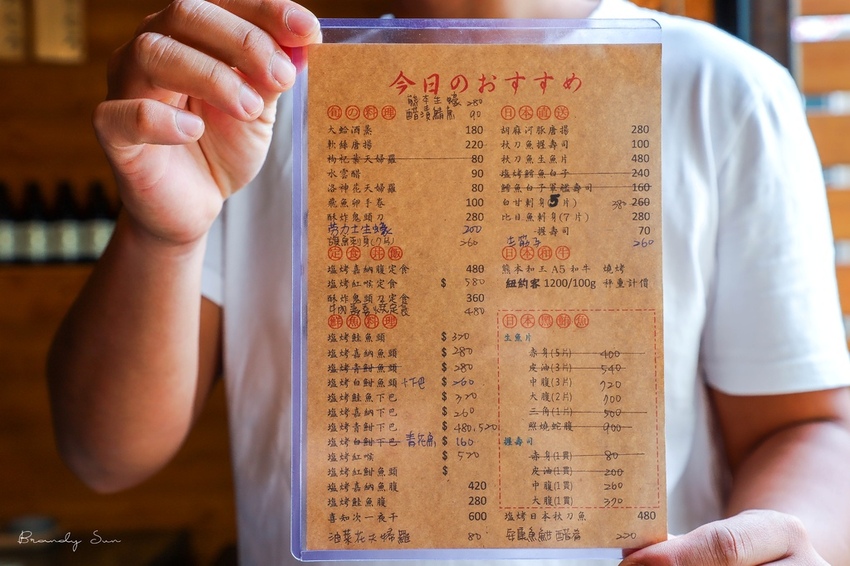 今日のおすすめ
熊本生蠔 280
醋漬鯖魚 90
旬の料理
大蛤酒蒸 180
軟絲唐揚 220
枸杞葉天婦羅 80
水雲醋 90
洛神花天婦羅 80
飛魚卵手卷 100
酥炸鬼頭刀 280
勞力士生蠔 200
260
定食 丼飯
塩烤嘉納腹定食 480
塩烤紅喉定食 $ 580
酥炸鬼頭刀定食 360
480
鮮魚料理
塩烤鮭魚頭 $ 320
塩烤嘉納魚頭 $ 280
塩烤青魽魚頭 $ 280
塩烤白魽魚頭 +下巴 $ 260
塩烤鮭魚下巴 $ 320
塩烤嘉納下巴 $ 260
塩烤青魽下巴 $ 480,520
塩烤白魽下巴 青花魚 $ 160
塩烤紅喉 $ 520
塩烤紅魽魚頭 $
塩烤嘉納魚腹 420
塩烤鮭魚腹 280
喜知次一夜干 600
油菜花天婦羅 80
日本直送
胡麻河豚唐揚 280
秋刀魚握壽司 100
秋刀魚生魚片 480
塩烤鱈魚白子 240
鱈魚白子軍艦壽司 160
白甘刺身5片) 380 260
比目魚刺身(7片) 280
握壽司 70
260
日本和牛
熊本和王A5和牛 燒烤
紐約客 1200/100g 秤重計價
日本黑鮪魚
生魚片
赤身(5片) 400
皮油(3片) 540
中腹(3片) 720
大腹(2片) 700
三角(1片) 500
照燒蛇腹 900
握壽司
赤身(1貫) 80
皮油(1貫) 200
中腹(1貫) 260
大腹(1貫) 370
塩烤日本秋刀魚 480
220
Brandy Sun